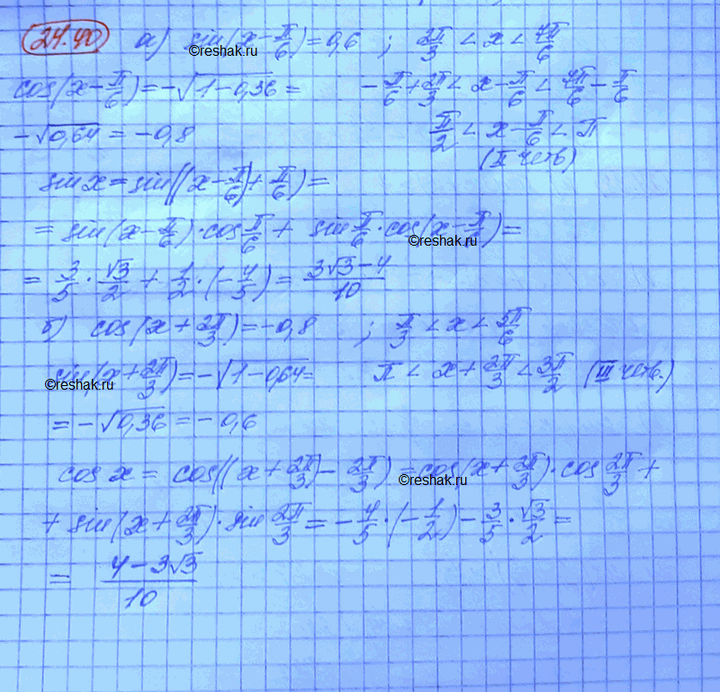 24.40 а) sin(x-π/6)=0,6 ; 2π/3 < x < 7π/6
©reshak.ru
cos(x-π/6)=-√(1-0,36)= -π/6+2π/3 < x-π/6 < 7π/6-π/6
-√0,64 = -0,8 π/2 < x-π/6 < π
(II четв)
sin x = sin((x-π/6)+π/6)=
= sin(x-π/6)·cos π/6 + sin π/6·cos(x-π/6)=
©reshak.ru
= 3/5·√3/2 + 1/2·(-4/5) = (3√3-4)/10
б) cos(x+2π/3)=-0,8 ; π/3 < x < 5π/6
sin(x+2π/3)=-√(1-0,64)= π < x+2π/3 < 3π/2 (III четв.)
©reshak.ru
=-√0,36 = -0,6
cos x = cos((x+2π/3)-2π/3)=cos(x+2π/3)·cos 2π/3 +
©reshak.ru
+ sin(x+2π/3)·sin 2π/3 = -4/5·(-1/2)-3/5·√3/2 =
= (4-3√3)/10